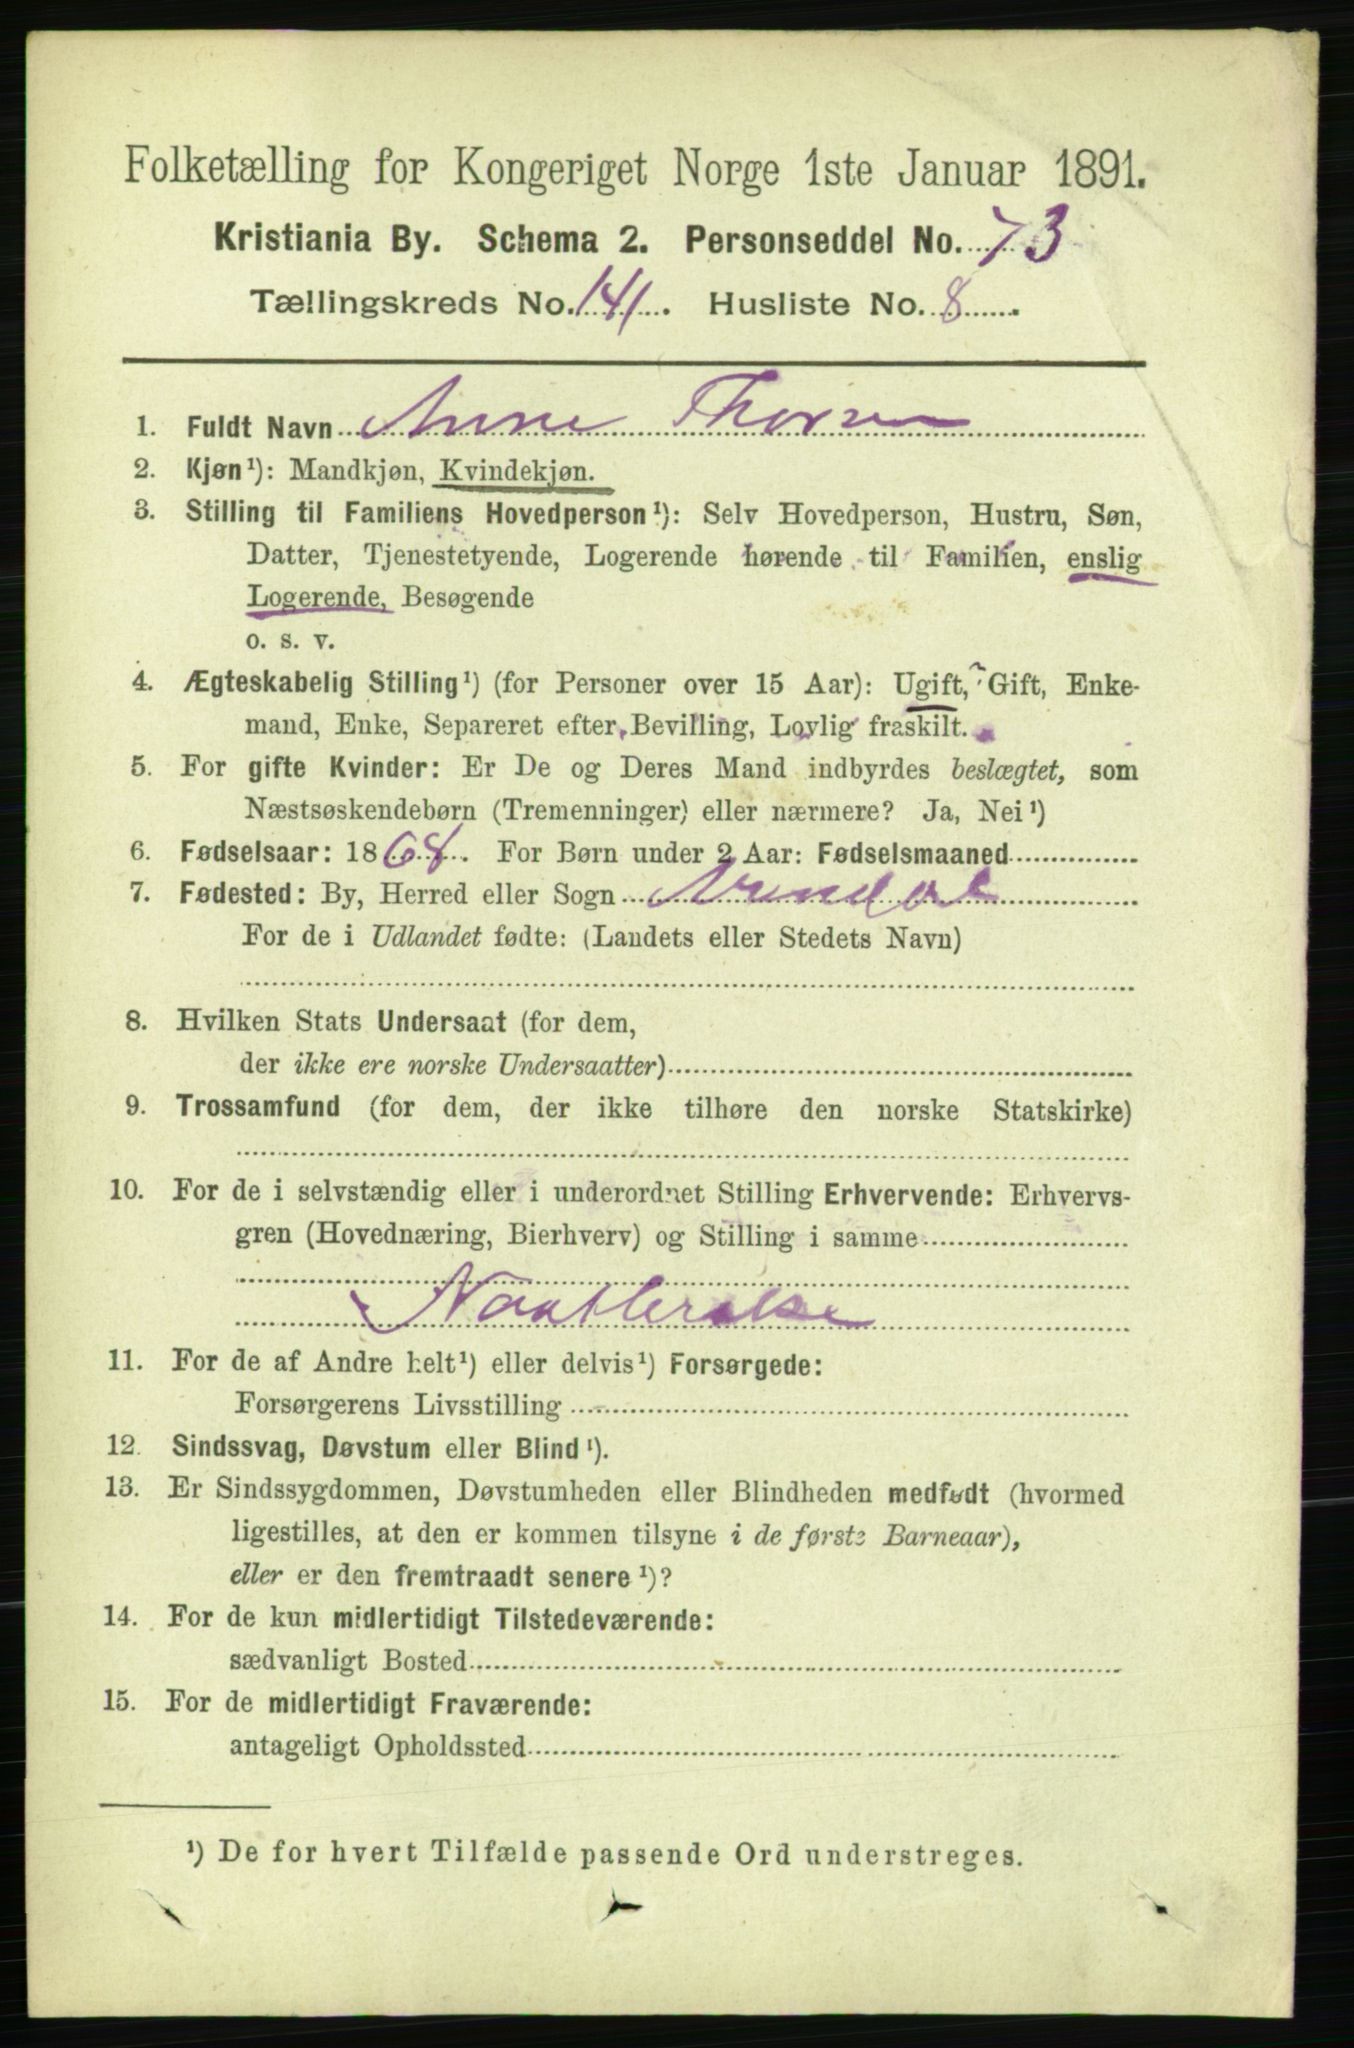 Folketælling for Kongeriget Norge 1ste Januar 1891.
Kristiania By. Schema 2. Personseddel No. 73
Tællingskreds No. 141. Husliste No. 8.
1. Fuldt Navn Anne Thorsen
2. Kjøn¹): Mandkjøn, Kvindekjøn.
3. Stilling til Familiens Hovedperson¹): Selv Hovedperson, Hustru, Søn,
Datter, Tjenestetyende, Logerende hørende til Familien, enslig
Logerende, Besøgende
o. s. v.
4. Ægteskabelig Stilling¹) (for Personer over 15 Aar): Ugift, Gift, Enke-
mand, Enke, Separeret efter Bevilling, Lovlig fraskilt.
5. For gifte Kvinder: Er De og Deres Mand indbyrdes beslægtet, som
Næstsøskendebørn (Tremenninger) eller nærmere? Ja, Nei¹)
6. Fødselsaar: 1868. For Børn under 2 Aar: Fødselsmaaned
7. Fødested: By, Herred eller Sogn Arendal
For de i Udlandet fødte: (Landets eller Stedets Navn)
8. Hvilken Stats Undersaat (for dem,
der ikke ere norske Undersaatter)
9. Trossamfund (for dem, der ikke tilhøre den norske Statskirke)
10. For de i selvstændig eller i underordnet Stilling Erhvervende: Erhvervs-
gren (Hovednæring, Bierhverv) og Stilling i samme
11. For de af Andre helt¹) eller delvis¹) Forsørgede:
Forsørgerens Livsstilling
12. Sindssvag, Døvstum eller Blind¹).
13. Er Sindssygdommen, Døvstumheden eller Blindheden medfødt (hvormed
ligestilles, at den er kommen tilsyne i de første Barneaar),
eller er den fremtraadt senere¹)?
14. For de kun midlertidigt Tilstedeværende:
sædvanligt Bosted
15. For de midlertidigt Fraværende:
antageligt Opholdssted
¹) De for hvert Tilfælde passende Ord understreges.